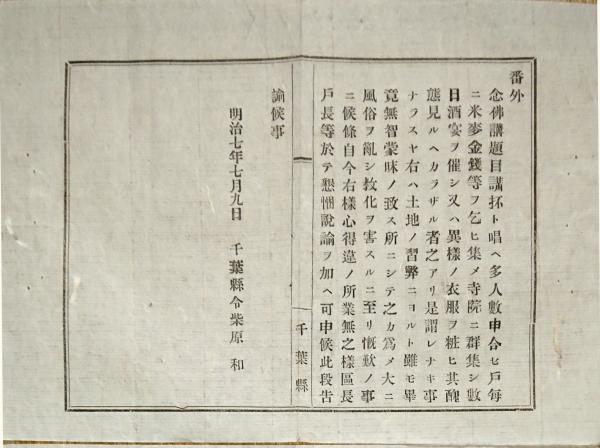 番外
念佛講題目講抔ト唱ヘ多人數申合セ戸每
ニ米麥金錢等ヲ乞ヒ集メ寺院ニ群集シ數
日酒宴ヲ催シ又ハ異樣ノ衣服ヲ粧ヒ其醜
態見ルヘカラザル者之アリ是謂レナキ事
ナラスヤ右ハ土地ノ習弊ニヨルト雖モ畢
竟無智蒙昧ノ致ス所ニシテ之カ爲メ大ニ
風俗ヲ亂シ敎化ヲ害スルニ至リ慨歎ノ事
ニ候條自今右樣心得違ノ所業無之樣區長
戸長等於テ懇悃說諭ヲ加ヘ可申候此段告
千葉縣
諭候事
明治七年七月九日 千葉縣令柴原 和